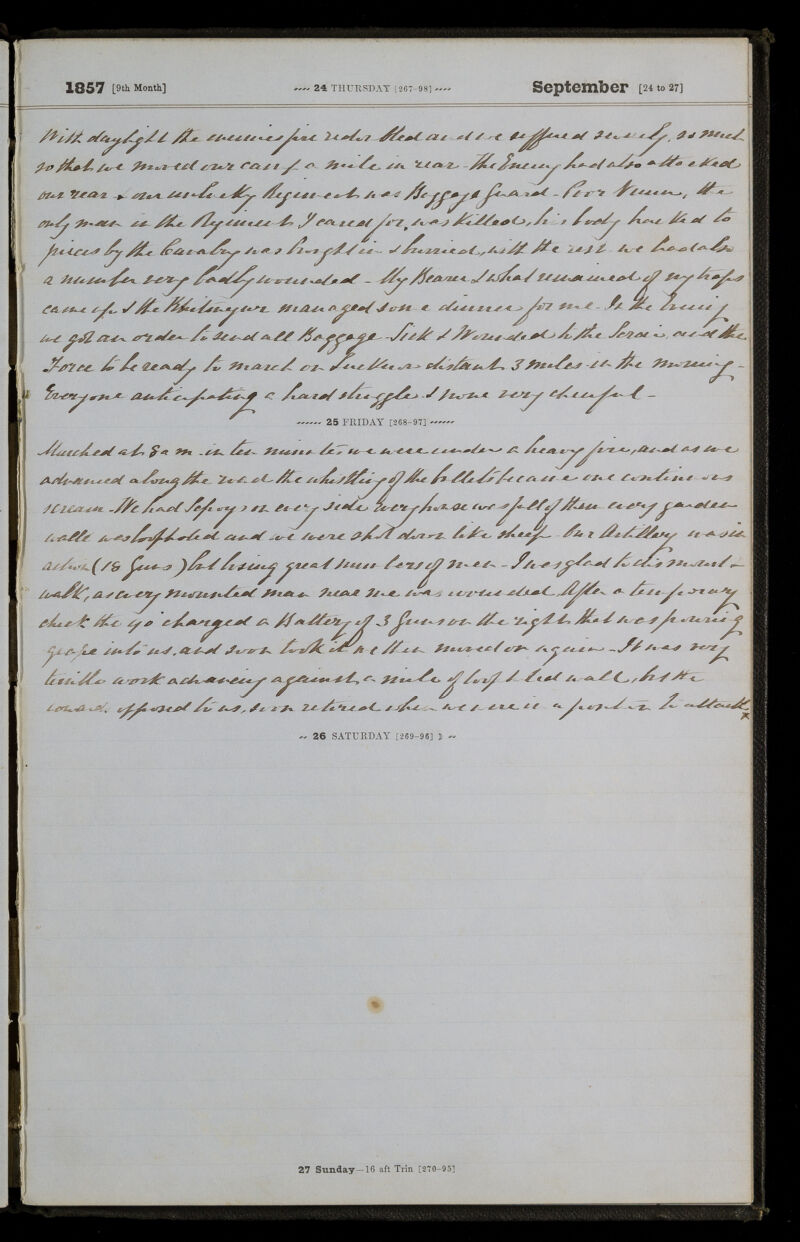 1857 [9th Month] 24 THURSDAY [267-98] September [24 to 27]
With daylight the enemies fire redoubled and we suffered severely, so much
so that we moved our camp a mile in rear - The Enemy had also attacked
our rear & our unlucky Regiment was Baggage Guard - Poor, the
only man in the Regiment I cared for, was killed, his body hacked to
pieces by the Cavalry was brought in & buried, with the rest we had also
a number very badly wounded - My Bearer & what remained of my traps
came up & the Khitmugur managed some dinner for me - In the Evening
we got an order to send all Baggage Sick & Wounded to the Serai, and the
Force to be ready to march on Lucknow distant 3 miles in the morning -
Everyone anticipating a hard struggle & none very cheerful -
25 FRIDAY [268-97]
Marched at 8 a m - in ten minutes we were under a heavy fire, and as we
advanced along the road the whistling of the bullets became one continuous
scream - We had Sepoys on every side every house was full of them every garden
walls was loopholed and we were shot down like sheep - Our Artillery was in
action (18 Guns) but losing great numbers of men - I was glad to dismount &
walk, as every mounted man near me was wounded After a temporary
check the 90 charged a Battery of 3 Guns on the right that was pouring
grape into us, and soon took it we then moved on again - It was very
terrible work advancing against a mile of loopholed wall, but the
cowards opposed to us, soon retired when we were in a position to attack
26 SATURDAY [269-96]
27 Sunday—16 aft Trin [270-95]